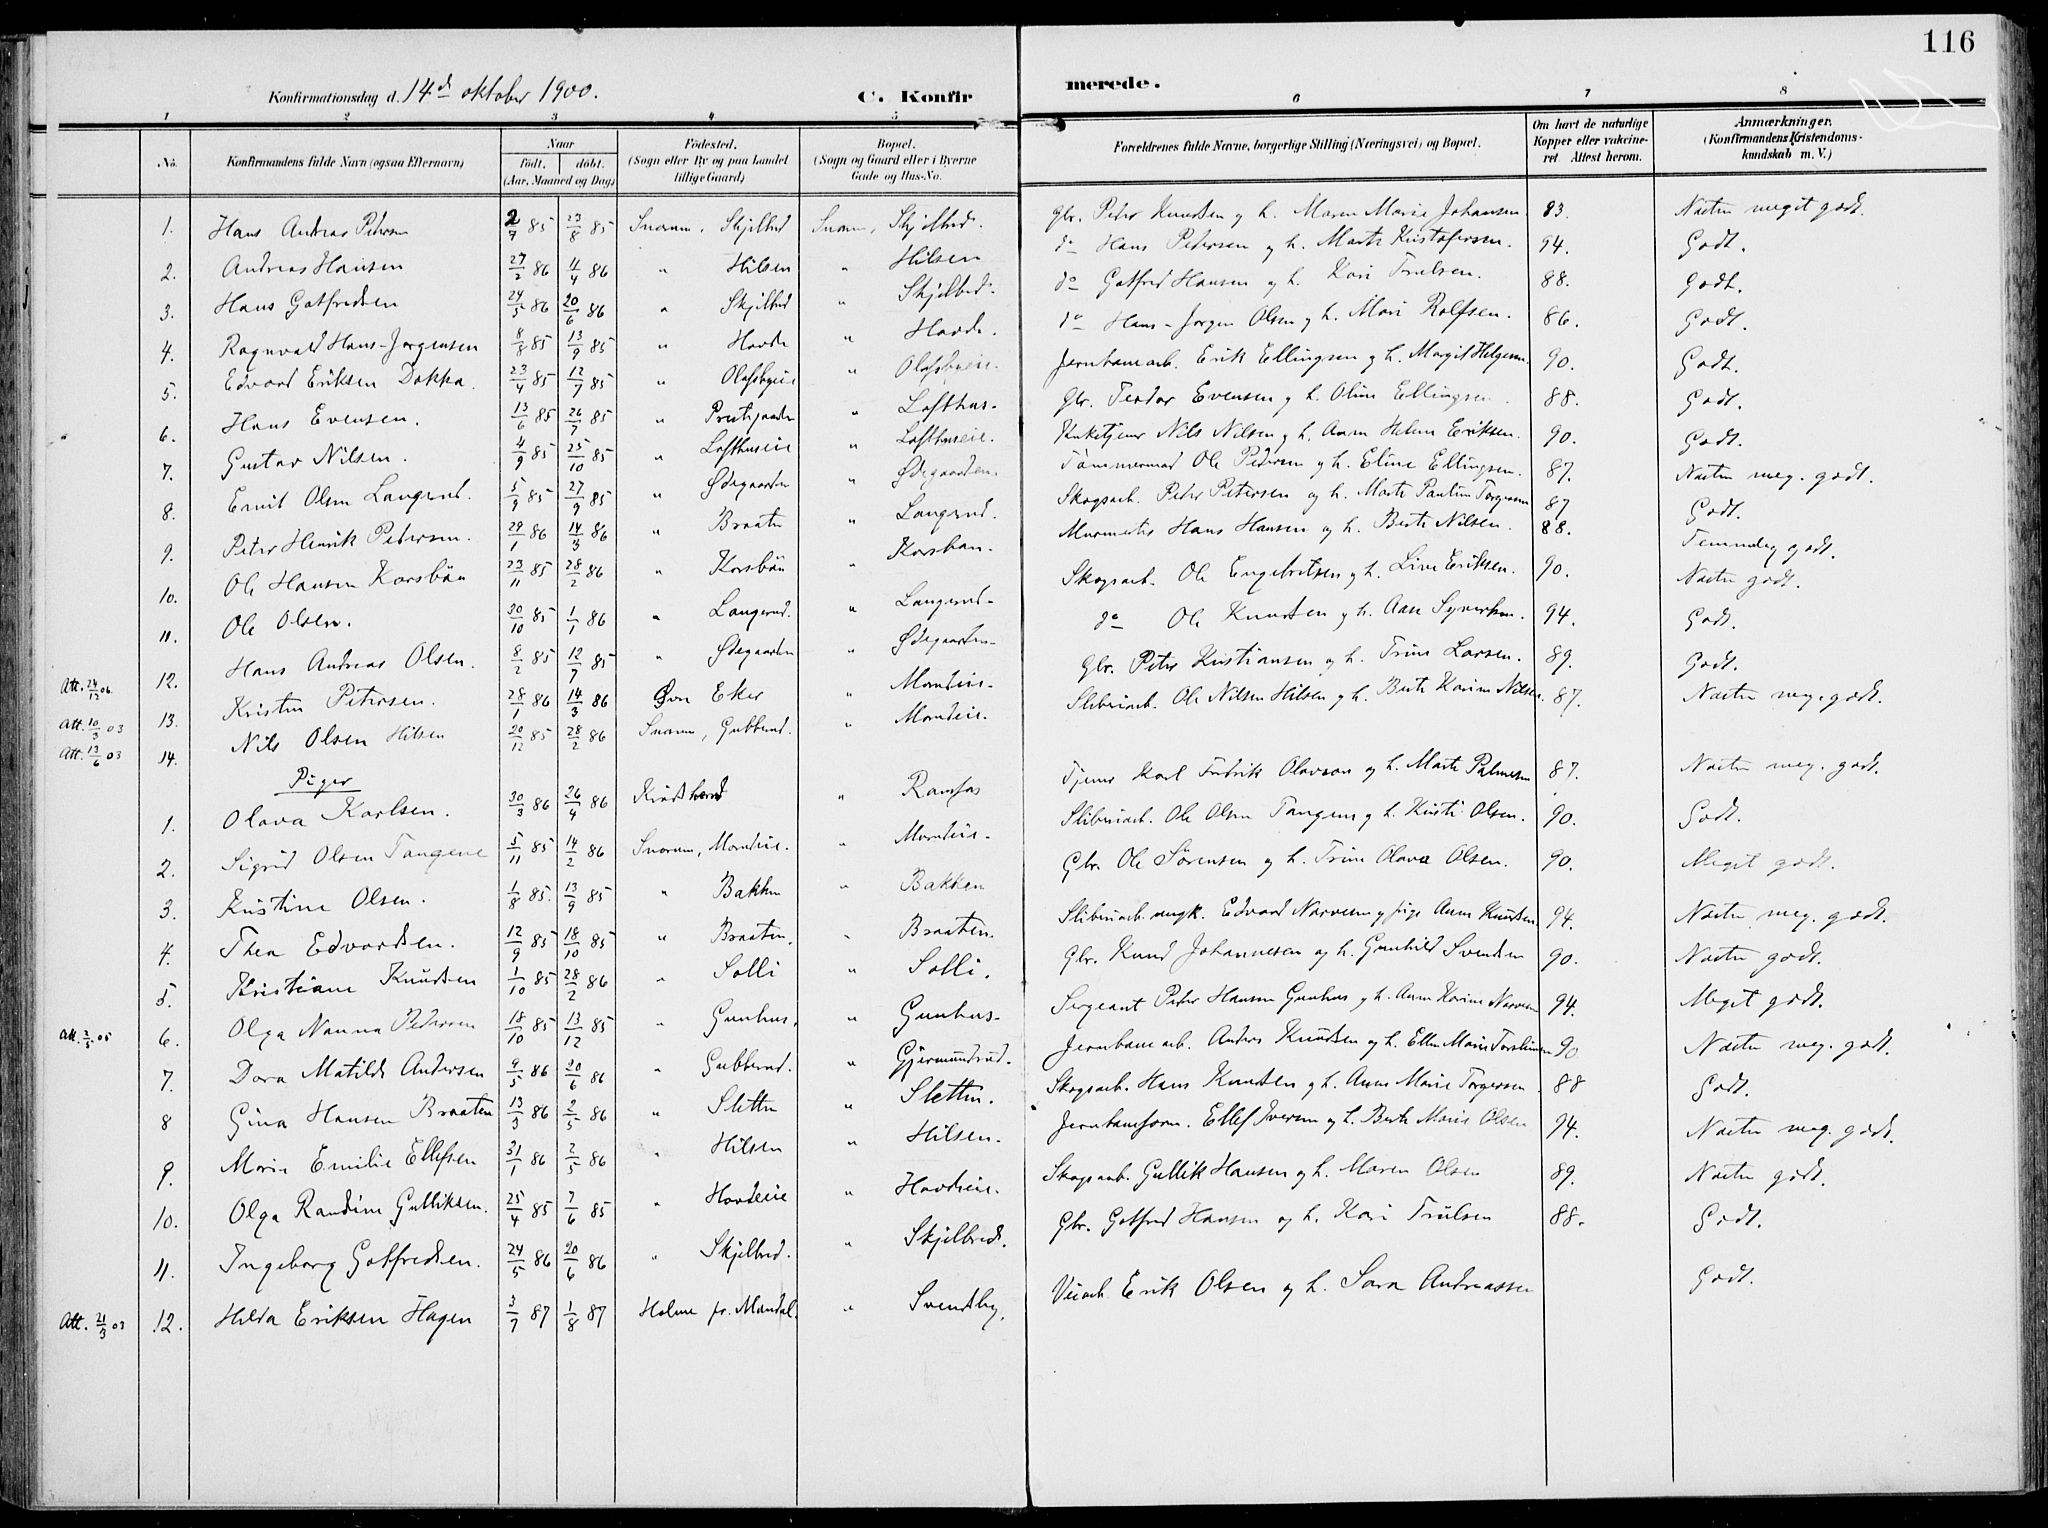 116
Konfirmationsdag d. 14de oktober 1900. C. Konfir merede.
1 2 3 4 5 6 7 8
No. Konfirmandens fulde Navn (ogsaa Efternavn) Naar født. døbt. (Aar, Maaned og Dag) Fødested. (Sogn eller By og paa Landet tillige Gaard) Bopæl. (Sogn og Gaard eller i Byerne Gade og Hus-No. Forældrenes fulde Navne, borgerlige Stilling (Næringsvei) og Bopæl. Om havt de naturlige Kopper eller vakcineret Attest herom. Anmærkninger. (Konfirmandens Kristendomskundskab m. V.)
1. Hans Andreas Petersen 2/7 85 23/8 85 Snarum, Skjelbred Snarum, Skjelbred. Gbr. Peter Knudsen og h. Maren Marie Johansen 83. Næsten meget godt.
2. Andreas Hansen 27/2 86 11/4 86 " Hilsen " Hilsen do Hans Petersen og h. Marte Kristofersen. 94. Godt.
3. Hans Gotfredsen 24/5 86 20/6 86 " Skjelbred " Skjelbred. do Gotfred Hansen og h. Kari Trulsen. 88. Godt.
4. Ragnvald Hans-Jørgensen 8/8 85 13/9 85 " Hovde " Hovde. do Hans-Jørgen Olsen og h. Mari Rolfsen. 86. Godt.
5. Edvard Eriksen Dokka. 23/4 85 12/7 85 " Olafsbyeie " Olafsbyeie. Jernbanearb. Erik Ellingsen og h. Margit Helgesen 90. Godt.
6. Hans Evensen. 13/6 85 26/7 85 " Prestgaarden " Lofthus. Gbr. Teodor Evensen og h. Oline Ellingsen. 88. Godt.
7. Gustav Nilsen. 4/9 85 25/10 85 " Lofthuseie " Lofthuseie. Kirketjener Nils Nilsen og h. Anne Helene Eriksen. 90. Godt.
8. Emil Olsen Langerud. 5/9 85 27/9 85 " Ødegaarden " Ødegaarden. Tømmermand Ole Pedersen og h. Eline Ellingsen. 87. Næsten meg. godt.
9. Peter Henrik Petersen. 29/1 86 14/3 86 " Braaten " Langerud. Skogsarb. Peter Petersen og h. Marte Pauline Torgersen 87 Godt.
10. Ole Hansen Korsbøn 23/11 85 28/2 86 " Korsbøn " Korsbøn. Murmester Hans Hansen og h. Berte Nilsen. 88. Temmelig godt.
11. Ole Olsen. 30/10 85 1/1 86 " Langerud. " Langerud. Skogsarb. Ole Engebretsen og h. Live Eriksen. 90. Næsten godt.
12. Hans Andreas Olsen. 8/2 85 12/7 85 " Ødegaarden " Ødegaarden. do Ole Knudsen og h. Aase Syversen. 94. Godt.
Att. 24/12 06. 13. Kristen Petersen. 28/1 86 14/3 86 Øvre Eker " Morudeie. Gbr. Peter Kristiansen og h. Trine Larsen. 89. Godt.
Att. 10/3 03 14. Nils Olsen Hilsen 20/12 85 28/2 86 Snarum, Gubberud. " Morudeie. Sliberiarb. Ole Nilsen Hilsen og h. Berte Karine Nilsen. 87. Næsten meg. godt.
Att. 13/6 03
Piger
1. Olava Karlsen. 30/3 86 26/4 86 Krødsherred " Ramfos Tjener Karl Fredrik Olavson og h. Marte Palmesen 87. Næsten meg. godt.
2. Sigrid Olsen Tangene 5/11 85 14/2 86 Snarum, Morudeie. " Morudeie. Sliberiarb. Ole Olsen Tangene og h. Kirsti Olsen. 90. Godt.
3. Kristine Olsen. 1/8 85. 13/9 85 " Bakken " Bakken Gbr. Ole Sørensen og h. Trine Olava Olsen. 90. Meget godt.
4. Thea Edvardsen. 12/9 85 18/10 85 " Braaten. " Braaten. Sliberiarb. ungk. Edvard Narvesen og pige Anne Knudsen. 94. Næsten meg. godt.
5. Kristiane Knudsen 1/10 85 28/2 86 " Solli " Solli. Gbr. Knud Johannesen og h. Gunhild Svendsen 90. Næsten godt.
Att. 2/5 05 6. Olga Nanna Petersen 18/10 85 13/12 85 " Gunhus. " Gunhus. Sergeant Peter Hansen Gunhus og h. Anne Karine Narvesen 94. Meget godt.
7. Dora Matilde Andersen 9/5 86 20/6 86 " Gubberud. " Gjermundrud. Jernbanearb. Anders Knudsen og h. Ellen Marie Torstensen 90 Næsten meg. godt.
8 Gina Hansen Braaten 13/3 86 2/5 86 " Sletten " Sletten. Skogsarb. Hans Knudsen og h. Anne Marie Torgersen 88 Godt.
9. Marie Emilie Ellefsen 31/1 86 2/5 86 " Hilsen " Hilsen. Jernbaneform. Ellef Iversen og h. Berte Marie Olsen 94. Næsten meg. godt.
10. Olga Randine Gulliksen. 25/4 85 7/6 85 " Hovdeie " Hovdeie. Skogsarb. Gullik Hansen og h. Maren Olsen 89. Næsten godt.
11. Ingeborg Gotfredsen. 24/5 86 20/6 86 " Skjelbred. " Skjelbred. Gbr. Gotfred Hansen og h. Kari Trulsen 88. Godt.
Att. 21/3 03 12. Hilda Eriksen Hagen 3/7 87 1/8 87 Holme pr. Mandal. " Svendby. Veiarb. Erik Olsen og h. Sara Andreassen Godt.